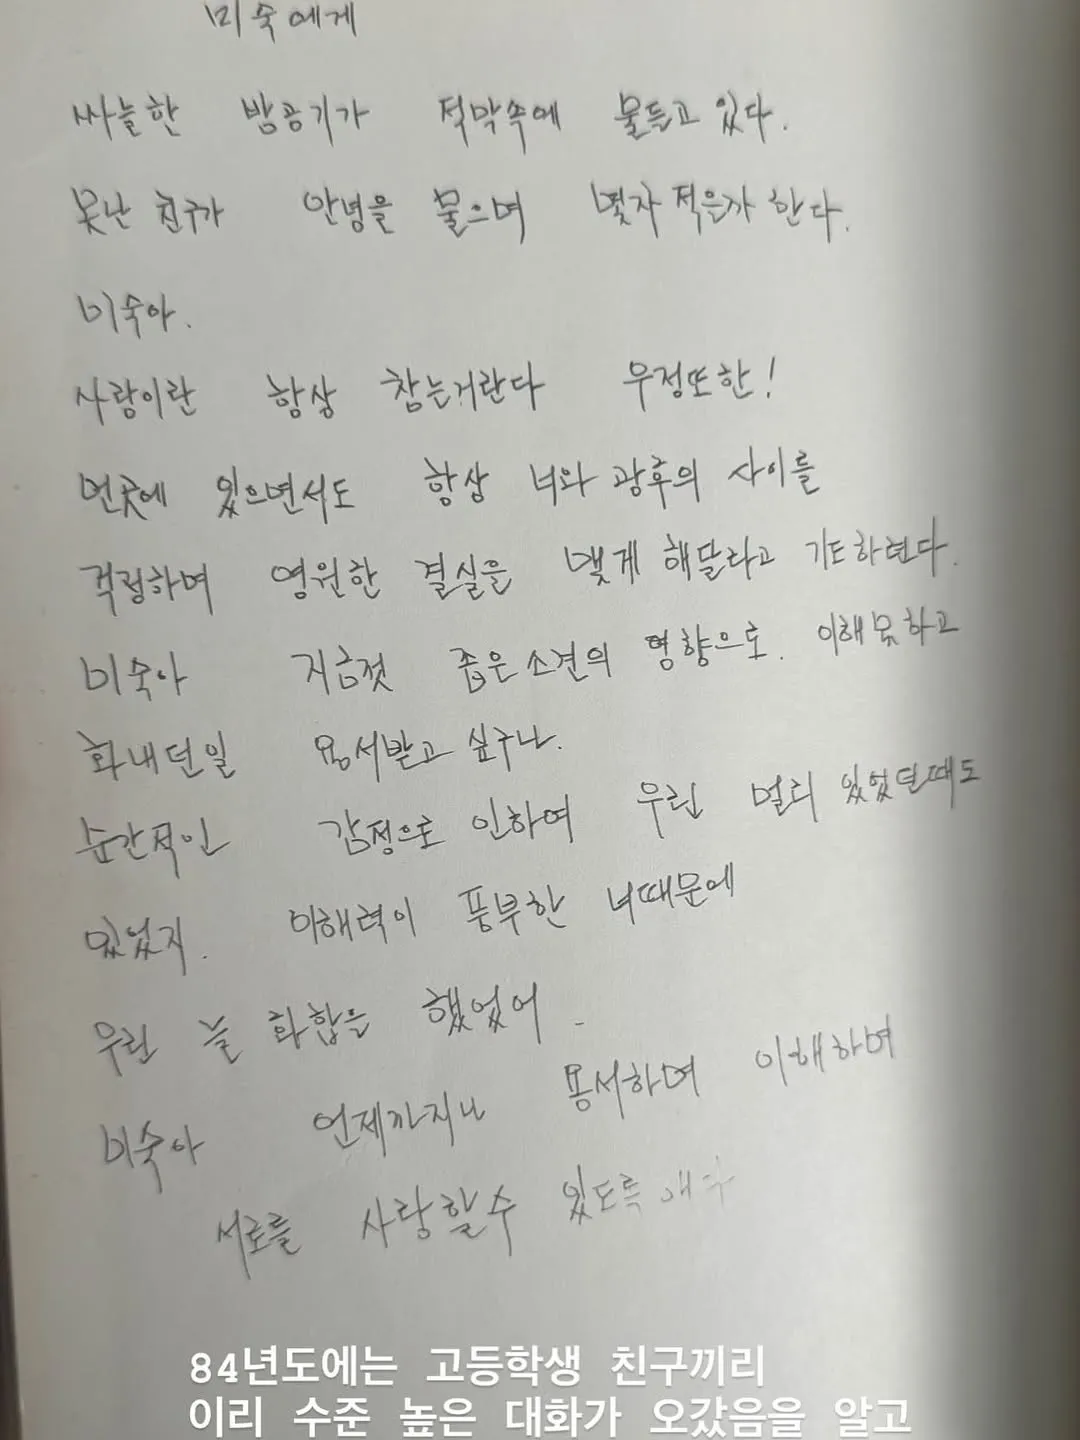 미숙에게
싸늘한 밤공기가 적막속에 물들고 있다.
못난 친구가 안녕을 물으며 몇자 적은까 한다.
미숙아.
사랑이란 항상 참는거란다 우정또한!
먼곳에 있으면서도 항상 너와 광후의 사이를
걱정하며 영원한 결실을 맺게 해달라고 기도하련다.
미숙아 지금젓 좁은 소견의 영향으로. 이해못하고
화내던일 용서받고 싶구나.
순간적인 감정으로 인하여 우린 멀리 있었던때도
있었지. 이해력이 풍부한 너때문에
우린 늘 화합을 했었어.
미숙아 언제까지나 용서하며 이해하며
서로를 사랑할수 있도록
84년도에는 고등학생 친구끼리
이리 수준 높은 대화가 오갔음을 알고